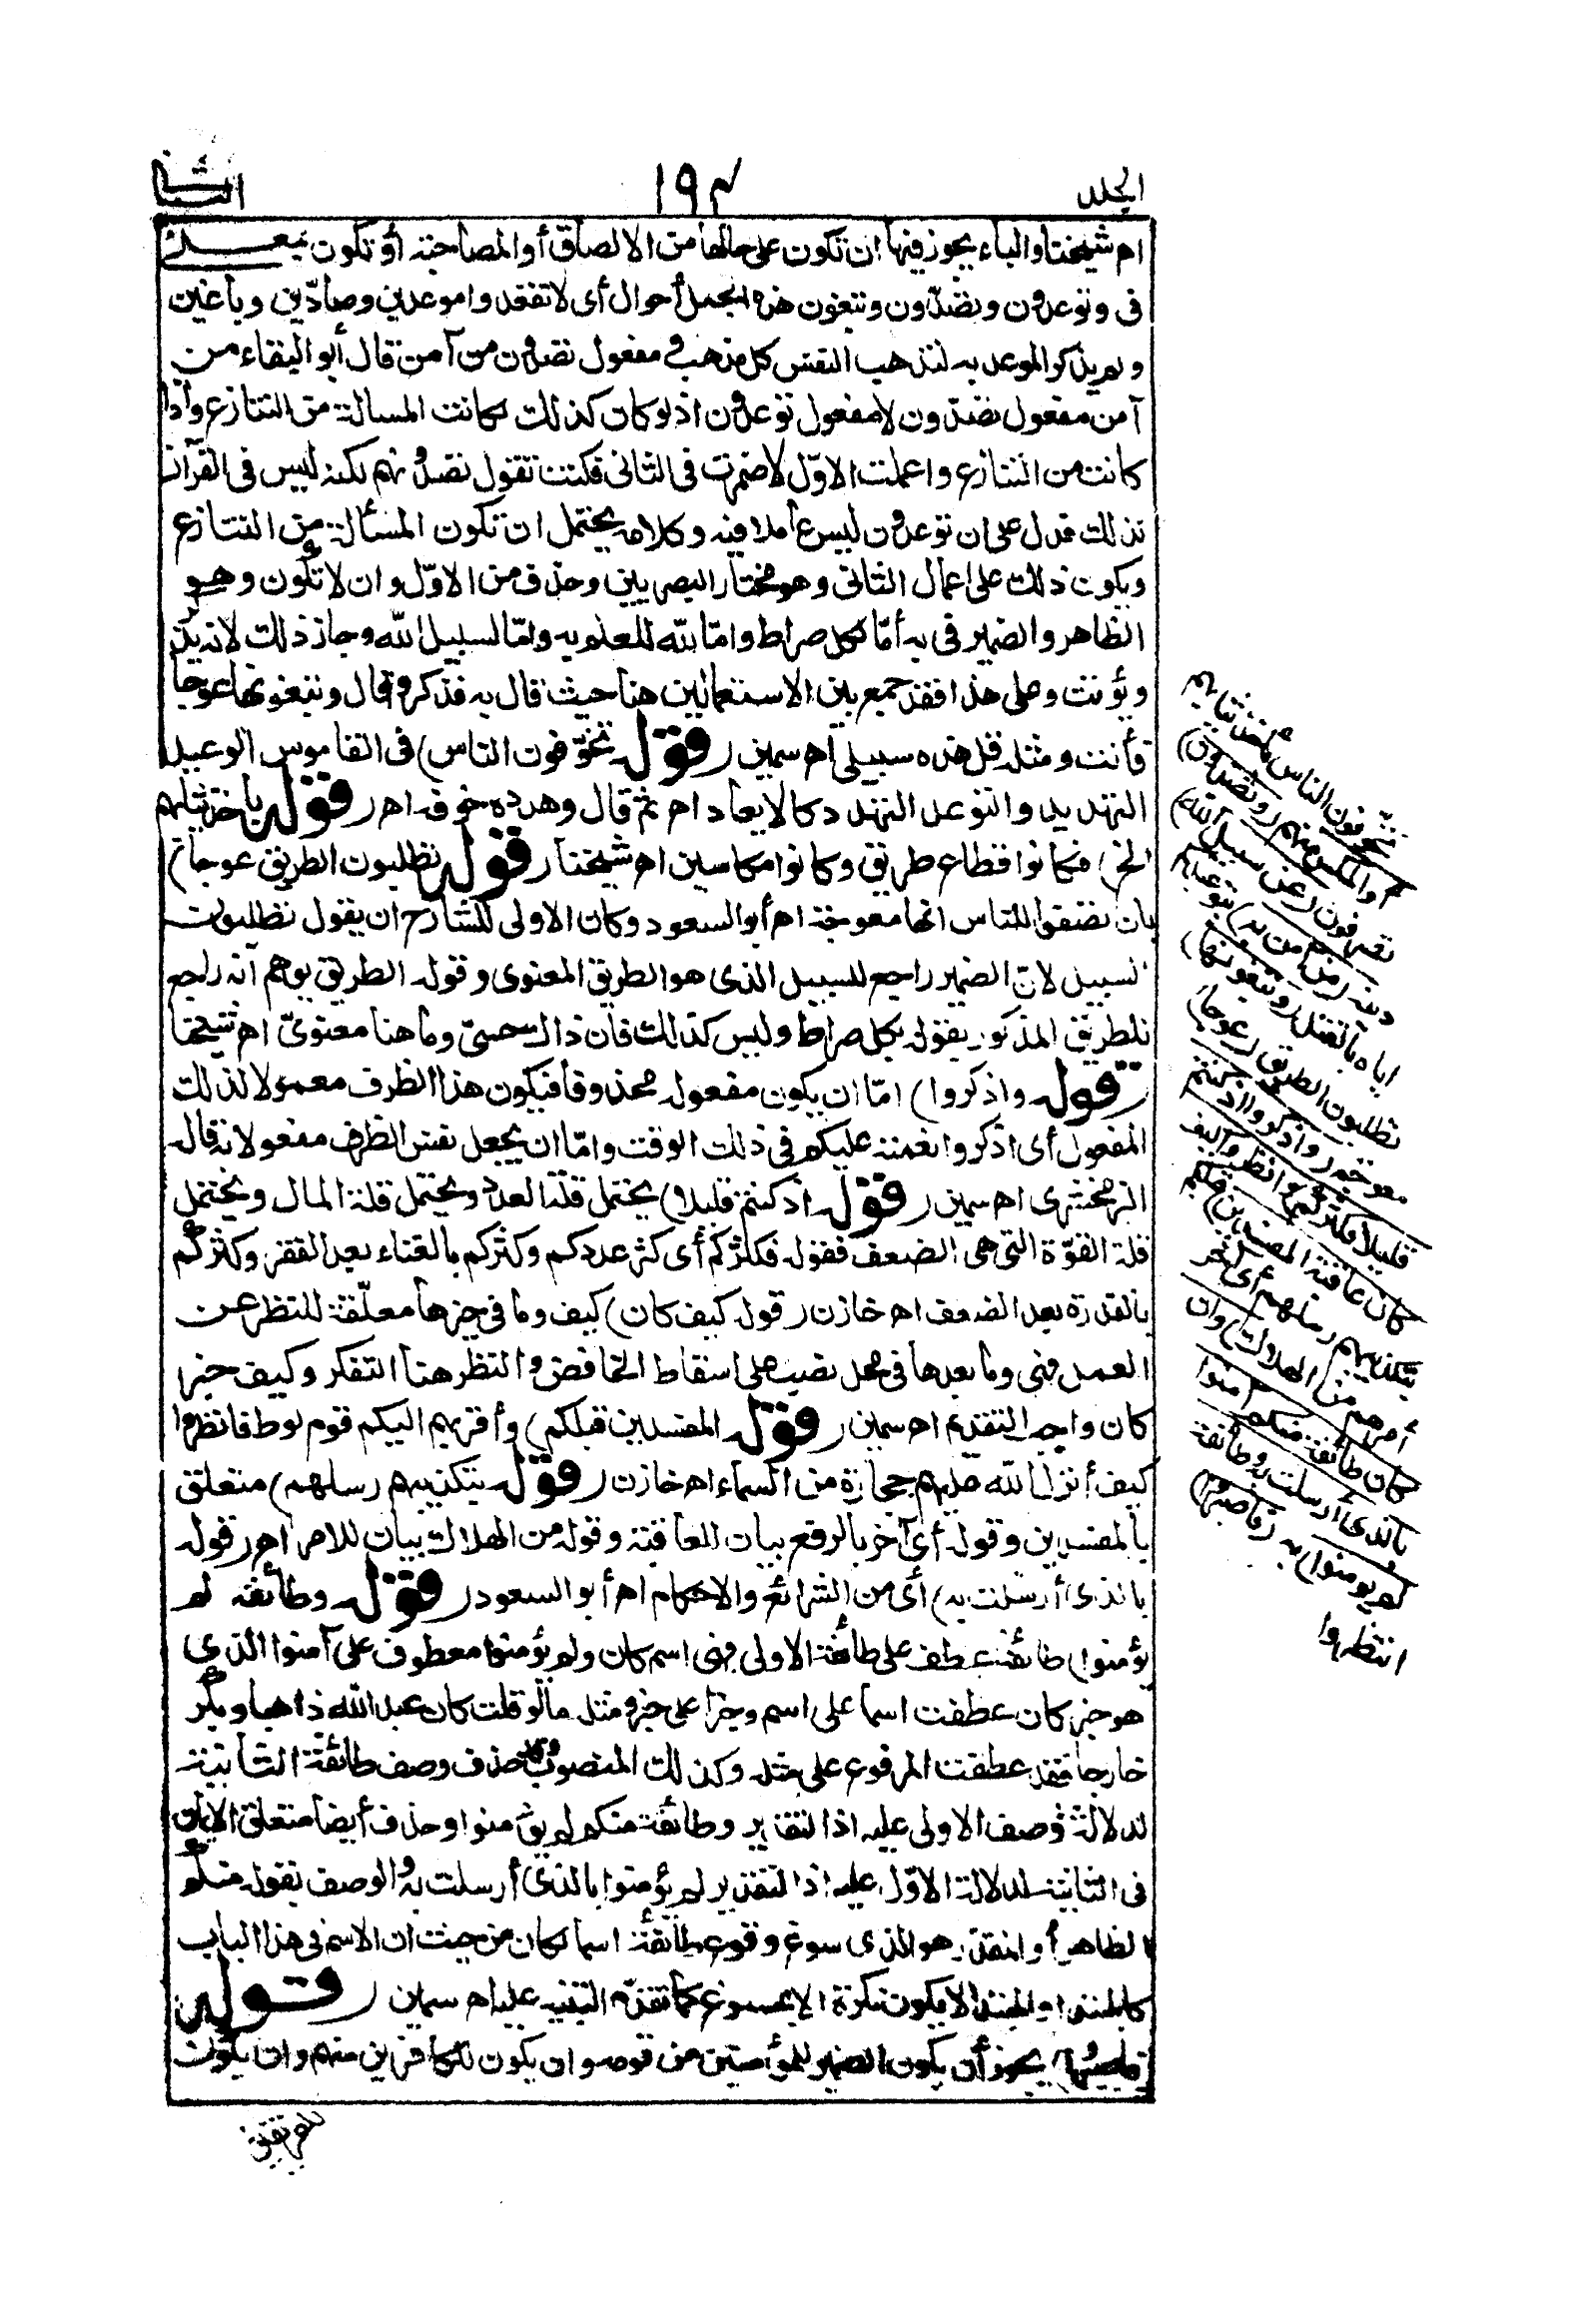 الجلد
١٩٢
الثانى
اه شيخنا والباء يجوز فيها ان تكون على حالها من الالصاق أو المصاحبة أو تكون بمعنى
فى وتوعدون وتصدّون وتبغون هذه الجمل أحوال أى لا تقعدوا موعدين وصادّين وباغين
ولم يذكر الموعد به لتذهب النفس كل مذهب فى مفعول تصدون من آمن قال أبو البقاء من
آمن مفعول تصدّون لا مفعول توعدون اذ لو كان كذلك لكانت المسالة من التنازع واذا
كانت من التنازع واعملت الاوّل لاضمرت فى الثانى فكنت تقول تصدونهم لكنه ليس فى القرآن
كذلك فدل على ان توعدون ليس عاملا فيه وكلامه يحتمل ان تكون المسألة من التنازع
ويكون ذلك على اعمال الثانى وهو مختار البصريين وحذف من الاوّل وان لا تكون وهو
الظاهر والضمير فى به أمّا لكل صراط وامّا لله للعلم به وامّا لسبيل الله وجاز ذلك لانه يذكر
ويؤنث وعلى هذا فقد جمع بين الاستعمالين هنا حيث قال به فذكر وقال وتبغونها عوجا
فأنث ومثله قل هذه سبيلى اه سمين (قوله تخوّفون الناس) فى القاموس الوعيد
التهديد والتوعد التهدد كالايعاد اه ثم قال وهدده خوفه اه (قوله باخذ ثيابهم
الخ) فكانوا قطاع طريق وكانوا مكاسين اه شيخنا (قوله تطلبون الطريق عوجا)
بان تصفوا للناس انها معوجة اه أبو السعود وكان الاولى للشارح ان يقول تطلبون
السبيل لانّ الضمير راجع للسبيل الذى هو الطريق المعنوى وقوله الطريق يوهم انه راجع
للطريق المذكور بقوله بكل صراط وليس كذلك فان ذاك حسىّ وما هنا معنوىّ اه شيخنا
(قوله واذكروا) امّا ان يكون مفعوله محذوفا فيكون هذا الظرف معمولا لذلك
المفعول أى اذكروا نعمته عليكم فى ذلك الوقت وامّا ان يجعل نفس الظرف مفعولا له قاله
الزمخشرى اه سمين (قوله اذ كنتم قليلا) يحتمل قلة العدد ويحتمل قلة المال ويحتمل
قلة القوّة التى هى الضعف فقوله فكثركم أى كثر عددكم وكثركم بالغناء بعد الفقر وكثركم
بالقدرة بعد الضعف اه خازن (قوله كيف كان) كيف وما فى حيزها معلّقة للنظر عن
العمل فهى وما بعدها فى محل نصب على اسقاط الخافض والنظر هنا التفكر وكيف خبر
كان واجب التقديم اه سمين (قوله المفسدين قبلكم) وأقربهم اليكم قوم لوط فانظروا
كيف أنزل الله عليهم حجارة من السماء اه خازن (قوله بتكذيبهم رسلهم) متعلق
بالمفسدين وقوله أى آخر بالرفع بيان للعاقبة وقوله من الهلاك بيان للامر اه (قوله
بالذى أرسلت به) أى من الشرائع والاحكام اه أبو السعود (قوله وطائفة لم
يؤمنوا) طائفة عطف على طائفة الاولى فهى اسم كان ولم يؤمنوا معطوف على آمنوا الذى
هو خبر كان عطفت اسما على اسم وخبرا على خبر ومثله ما لو قلت كان عبد الله ذاهبا وبكر
خارجا فقد عطفت المرفوع على مثله وكذلك المنصوب وقد حذف وصف طائفة الثانية
لدلالة وصف الاولى عليه اذ التقدير وطائفة منكم لم يؤمنوا وحذف أيضا متعلق الايمان
فى الثانية لدلالة الاوّل عليه اذ التقدير لم يؤمنوا بالذى أرسلت به والوصف بقوله منكم
الظاهر أو المقدر هو الذى سوغ وقوع طائفة اسما لكان من حيث ان الاسم فى هذا الباب
كالمبتدا والمبتدا لا يكون نكرة الا بمسوغ كما تقدّم التنبيه عليه اه سمين (قوله
فاصبروا) يجوز أن يكون الضمير للمؤمنين من قومه وان يكون للكافرين منهم وان يكون
للفريقين
تخوفون الناس بأخذ ثيابهم
أو المكس منهم (وتصدون)
تصرفون (عن سبيل الله)
دينه (من آمن به) بتوعدكم
اياه بالقتل (وتبغونها)
تطلبون الطريق (عوجا)
معوجة (واذكروا اذ كنتم
قليلا فكثركم وانظروا كيف
كان عاقبة المفسدين) قبلكم
بتكذيبهم رسلهم أى آخر
أمرهم من الهلاك (وان
كان طائفة منكم آمنوا
بالذى أرسلت به وطائفة
لم يؤمنوا) به (فاصبروا)
انتظروا